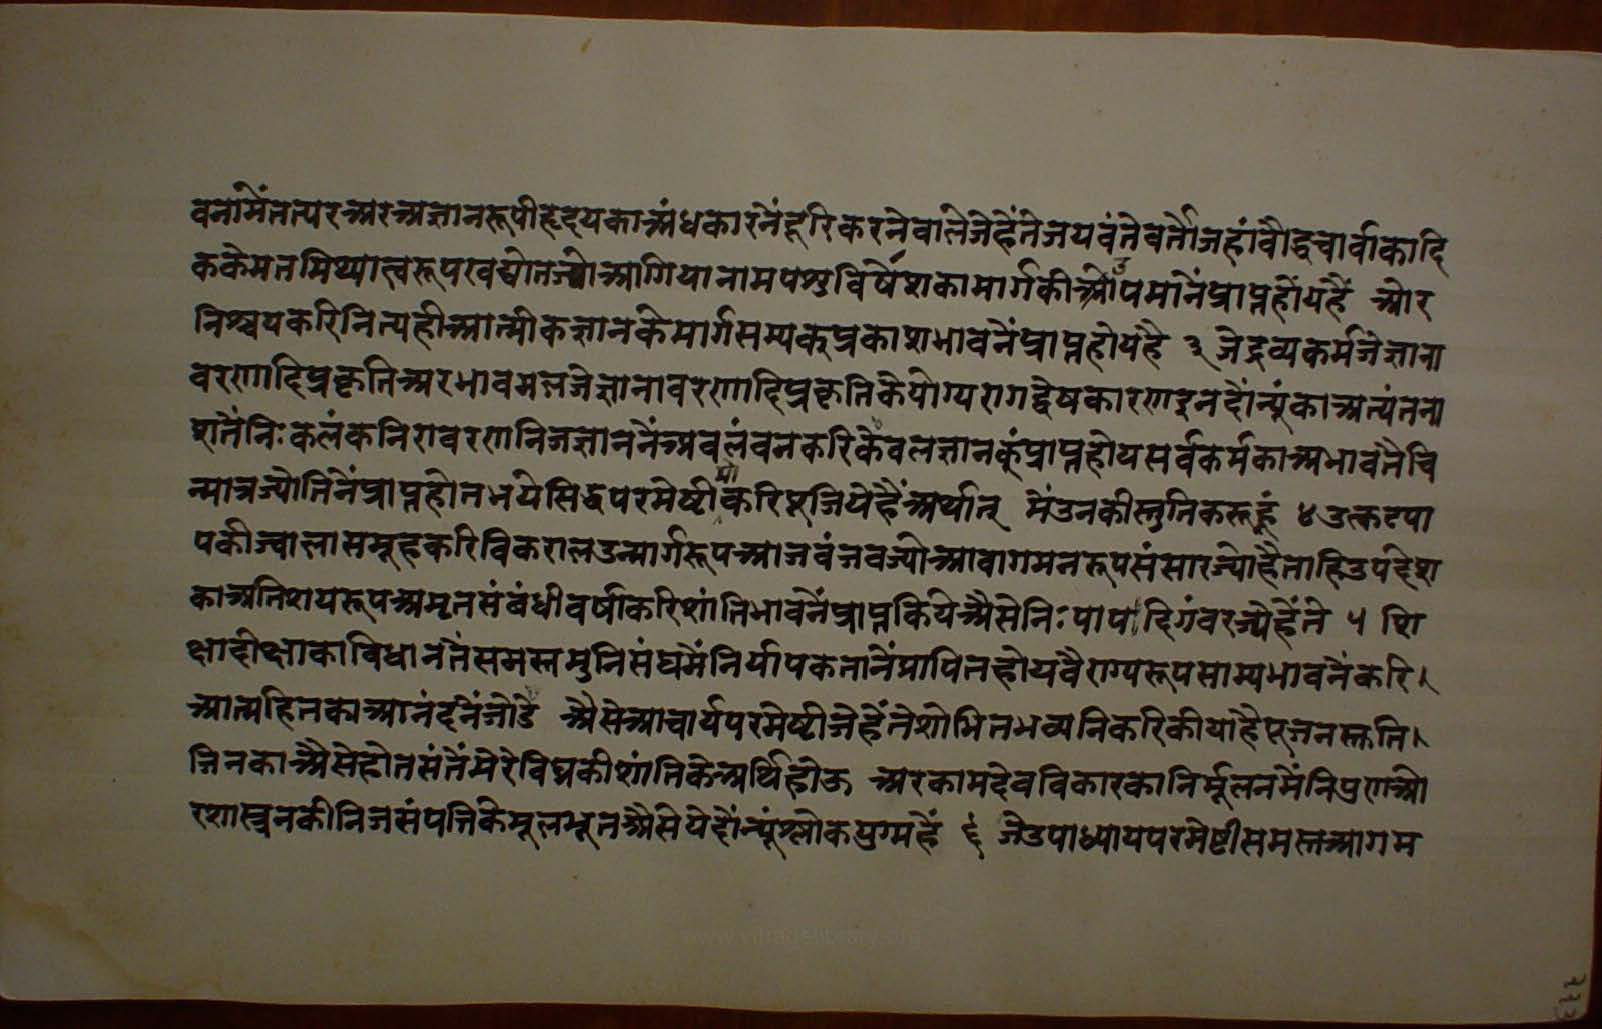 वनामेंतत्परअरअज्ञानरूपीहृदयकाअंधकारनेंदूरिकरनेवालेजेहैंतेजयवंतेवर्तोजहांवौद्धचार्वाकादि
ककेमतमिथ्यात्वरूपखद्योतज्योआगियानामपशुविषेंशकामार्गकीओपमानेंप्राप्तहोंयहैं ओर
निश्चयकरिनित्यहीआत्मीकज्ञानकेमार्गसम्यक्प्रकाशभावनेंप्राप्तहोयहै ३ जेद्रव्यकर्मजेज्ञाना
वरणादिप्रकृतिअरभावमलजेज्ञानावरणादिप्रकृतिकेयोग्यरागद्वेषकारणइनदोंन्यूंकाअत्यंतना
शतेंनिःकलंकनिरावरणनिजज्ञाननेंअवलंवनकरिकेवलज्ञानकूंप्राप्तहोयसर्वकर्मकाअभावतैचि
न्मात्रज्योतिनेंप्राप्तहोतभयेसिद्धपरमेष्टीमोकरिपूजियेहैंअर्थात् मेंउनकीस्तुतिकरूहूं ४ उत्कटपा
पकीज्वालासमूहकरिविकरालउन्मार्गरूपआजवंजवज्योआवागमनरूपसंसारज्योहैताहिउपदेश
काअतिशयरूपअमृतसंबंधीवर्षाकरिशांतिभावनेंप्राप्तकियेअैसेनिःपापदिगंवरज्येहैंते ५ शि
क्षादीक्षाकाविधानतेंसमस्तमुनिसंघमेंनिर्यापकतानेंप्रापितहोयवैराग्यरूपसाम्यभावनेंकरि।
आत्महितकाआनंदनेंजोडे अैसेआचार्यपरमेष्टीजेहैंतेशोभितभव्यनिकरिकीयाहैपूजनस्तति।
जिनकाअैसेहोतसंतेंमेरेविघ्नकीशांतिकेअर्थिहोऊ अरकामदेवविकारकानिर्मूलनमेंनिपुणओ
रशास्त्रनकीनिजसंपत्तिकेमूलभूतअैसेयेदोंन्यूंश्लोकयुग्महैं ६ जेउपाध्यायपरमेष्टीसमस्तआगम